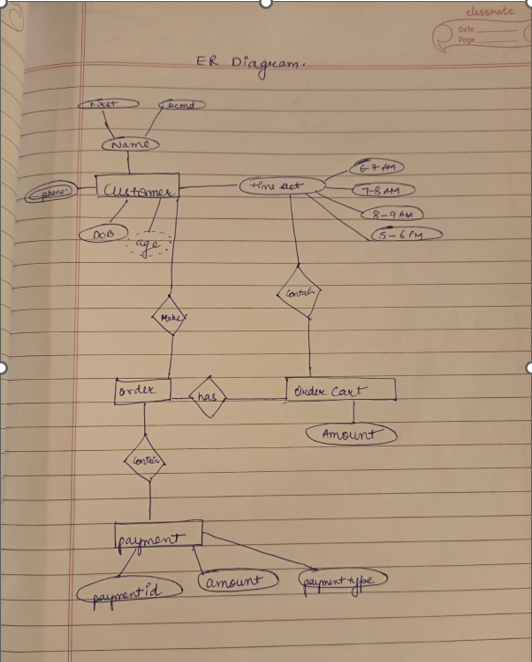 classmate
Date
Page
ER Diagram.
first
second
Name
phone.
Customer
time slot
6-7 AM
7-8 AM
8-9 AM
5-6 PM
DOB
age
Make
Contain
Order
has
Order Cart
Amount
Contain
payment
paymentid
amount
payment type